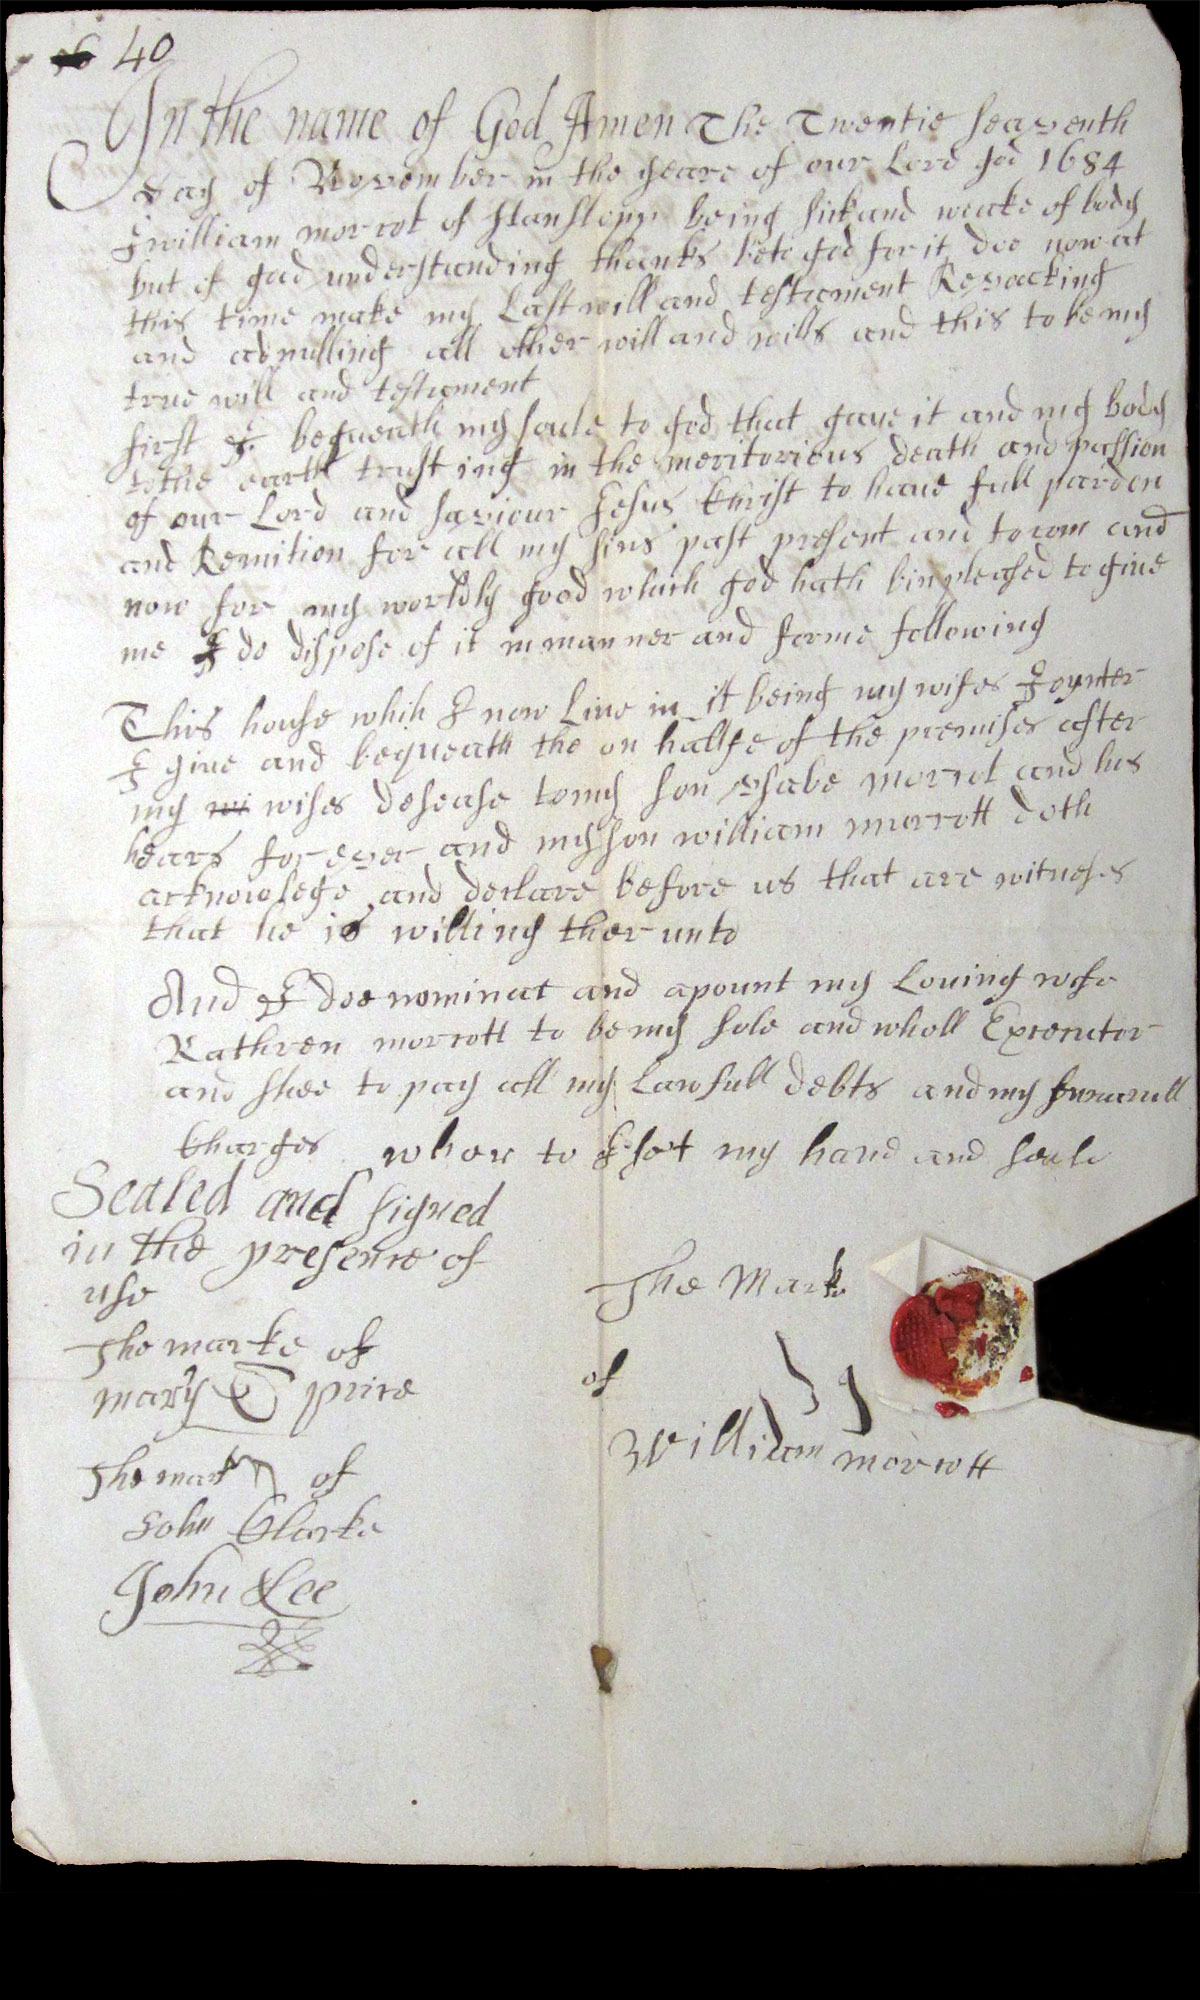 40
In the name of God Amen The Twentie seaventh
day of November in the yeare of our Lord god 1684
I william morrot of Hanslopp being sick and weake of body
but of gud understanding thanks beto god for it doe now at
this time make my Last will and testament Revoacking
and adnulling all other will and wills and this to be my
true will and testament
first I bequeath my soule to god that gave it and my body
tothe earth trusting in the meritorious death and passion
of our Lord and saviour Jesus Christ to have full pardon
and Remition for all my sins past present and to com and
now for my worldly good which god hath bin pleased to give
me I do dispose of it in manner and forme following
This house whih I now Live in it being my wifes Joynter
I give and bequeath the on hallfe of the premises after
my wifes desease to my son morrot and his
hears for ever and my son william morrott doth
acknowlege and declare before us that are witneses
that he is willing ther unto
And I doe nominat and apount my Loving wife
Kathren morrott to be my sole and wholl Executor
and shee to pay all my Lawfull debts and my funarall
Charges wher to I set my hand and seale
Sealed and signed
in the presence of
use
The marke of
mary price
The mark of
John Clarke
John Lee
The Marke
of
William morrott